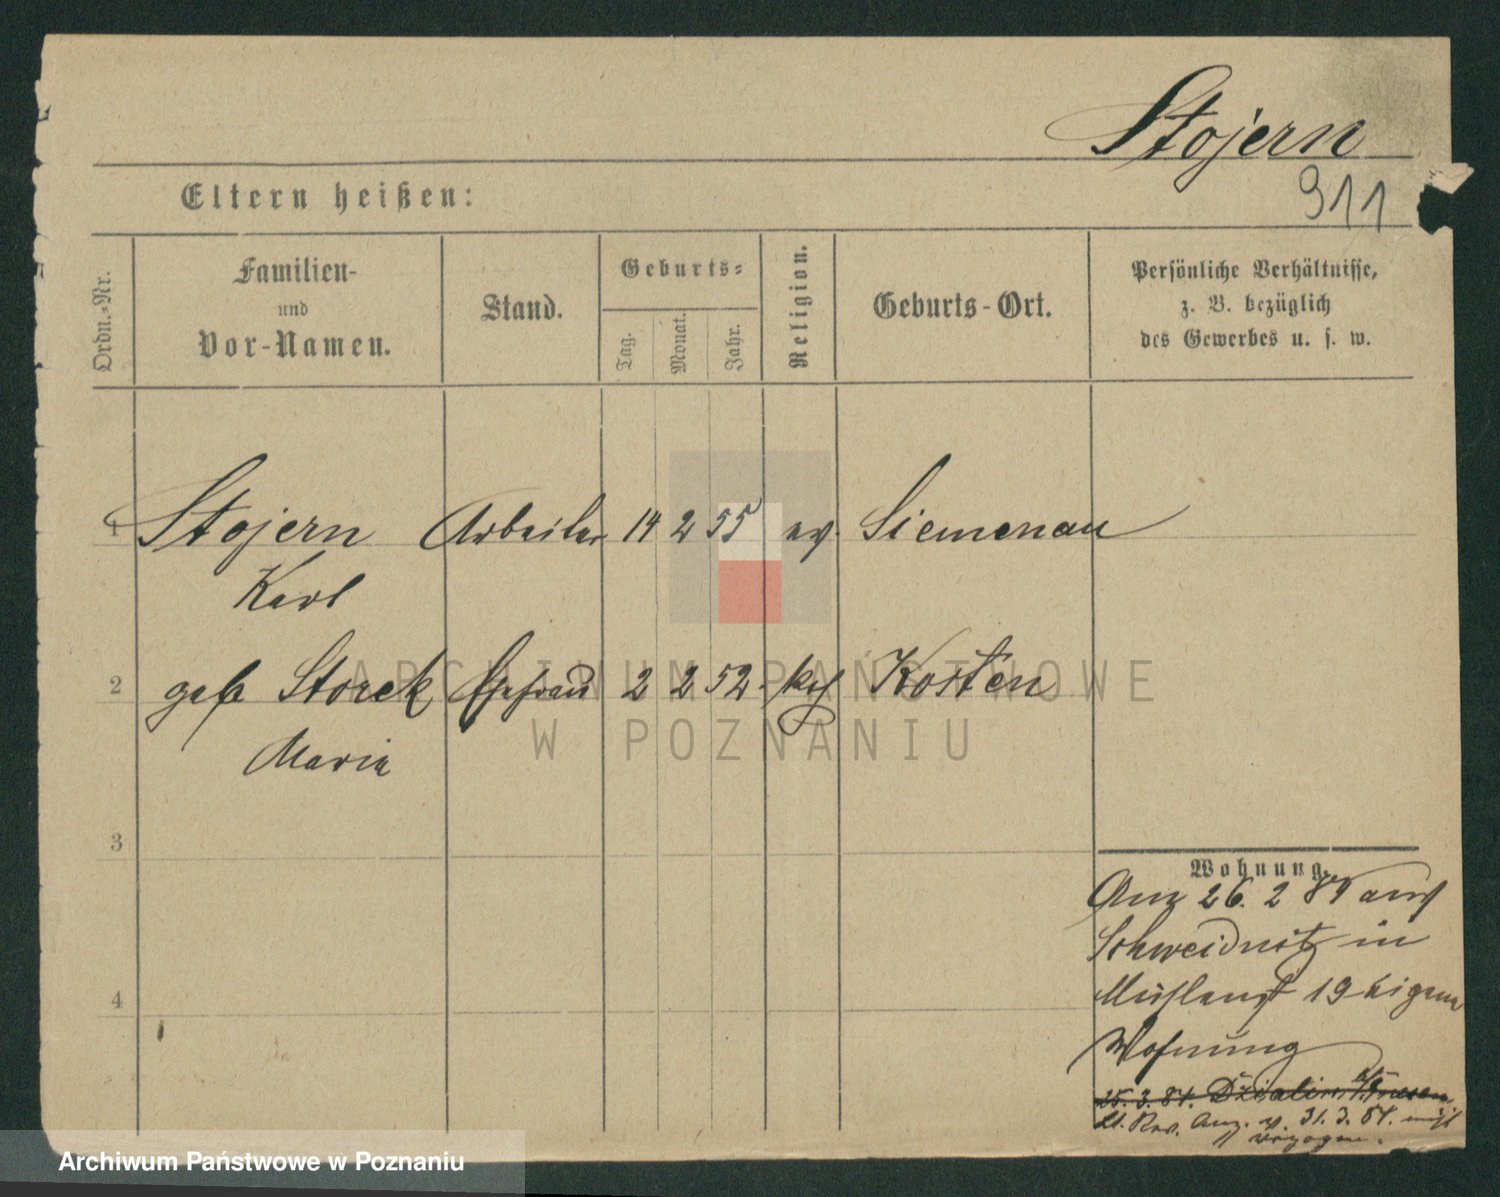 Stojern
911
Eltern heißen:
Ordn.-Nr.
Familien-
und
Vor-Namen.
Stand.
Geburts-
Tag.
Monat.
Jahr.
Religion.
Geburts-Ort.
Persönliche Verhältnisse,
z. B. bezüglich
des Gewerbes u. s. w.
1 Stojern Arbeiter 14 2 55 ev. Siemenau
Karl
2 geb Storek Ehefrau 2 2 52 kth Kosten
Maria
3
4
Wohnung.
Anz 26. 2 84 aus
Schweidnitz in
Mühlenst 19 eigene
Wohnung
25. 3. 84. Dzialin b/Gnesen
Lt. Rev. Anz. v. 31. 3. 84. nicht
verzogen.
ARCHIWUM PAŃSTWOWE
W POZNANIU
Archiwum Państwowe w Poznaniu